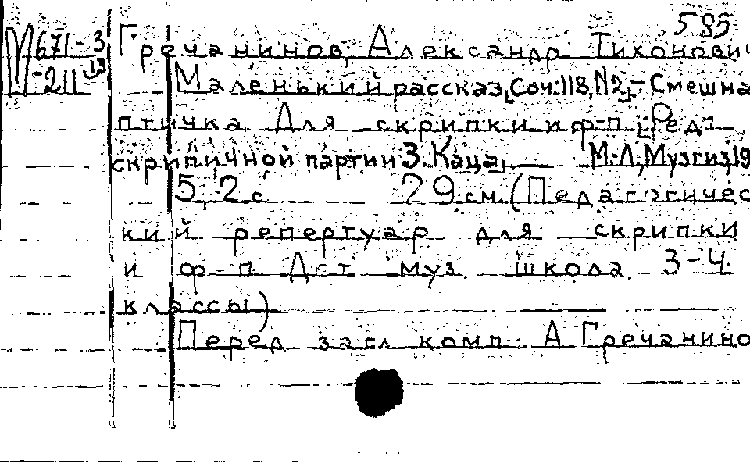 585
М671-3 Гречанинов, Александр Тихонович
М-211 Маленький рассказ, [Соч. 118, №2]. - Смешна
птичка Для скрипки и ф-п. [Ред.
скрипичной партии З. Каца]. М.-Л., Музгиз, 19
5, 2 с. 29 см. (Педагогичес
кий репертуар для скрипки
и ф-п Дет муз школа. 3-4
классы)
Перед загл комп А Гречанино